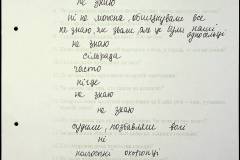 не знаю
ні не можна, обшукували все
не знаю, як звали, але це були наші
односельці
не знаю
сільрада
часто
нігде
не знаю
не знаю
судили, позбавляли волі
ні
колгоспні охоронці